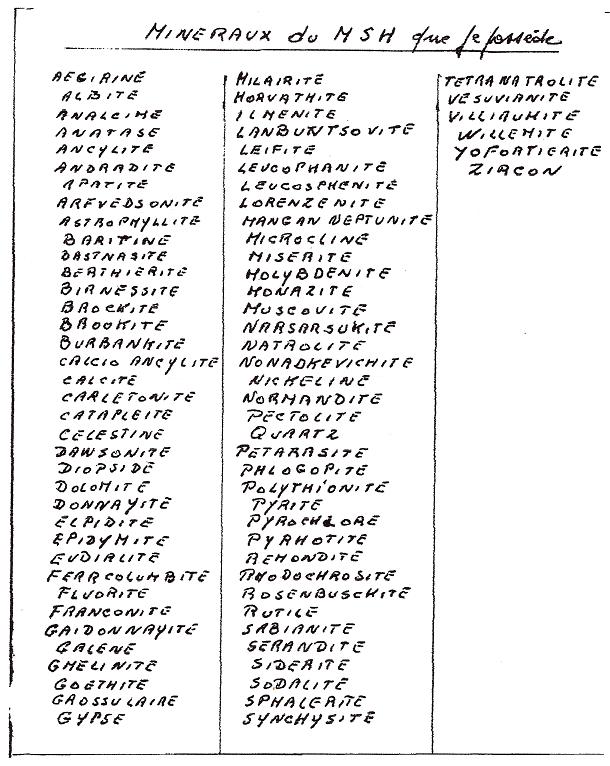 MINERAUX du MSH que je possède
AEGIRINE
ALBITE
ANALCIME
ANATASE
ANCYLITE
ANDRADITE
APATITE
ARFVEDSONITE
ASTROPHYLLITE
BARITINE
BASTNASITE
BERTHIERITE
BIRNESSITE
BROCKITE
BROOKITE
BURBANKITE
CALCIO ANCYLITE
CALCITE
CARLETONITE
CATAPLEITE
CELESTINE
DAWSONITE
DIOPSIDE
DOLOMITE
DONNAYITE
ELPIDITE
EPIDYMITE
EUDIALITE
FERRCOLUMBITE
FLUORITE
FRANCONITE
GAIDONNAYITE
GALENE
GMELINITE
GOETHITE
GROSSULAIRE
GYPSE
HILAIRITE
HORVATHITE
ILMENITE
LANBUNTSOVITE
LEIFITE
LEUCOPHANITE
LEUCOSPHENITE
LORENZENITE
MANGAN NEPTUNITE
MICROCLINE
MISERITE
MOLYBDENITE
MONAZITE
MUSCOVITE
NARSARSUKITE
NATROLITE
NONADKEVICHITE
NICKELINE
NORMANDITE
PECTOLITE
QUARTZ
PETARASITE
PHLOGOPITE
POLYTHIONITE
PYRITE
PYROCHLORE
PYRHOTITE
REMONDITE
RHODOCHROSITE
ROSENBUSCHITE
RUTILE
SABIANITE
SERANDITE
SIDERITE
SODALITE
SPHALERITE
SYNCHYSITE
TETRANATROLITE
VESUVIANITE
VILLIAUMITE
WILLEMITE
YOFORTIERITE
ZIRCON